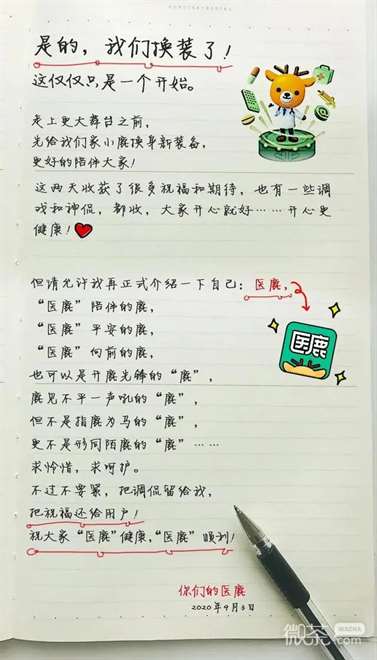 是的，我们换装了！
这仅仅只是一个开始。
走上更大舞台之前，
先给我们家小鹿换身新装备，
更好的陪伴大家！
这两天收获了很多祝福和期待，也有一些调
戏和神侃，都收，大家开心就好……开心更
健康！
但请允许我再正式介绍一下自己：医鹿，
“医鹿”陪伴的鹿，
“医鹿”平安的鹿，
“医鹿”向前的鹿，
医鹿
也可以是开鹿先锋的“鹿”，
鹿见不平一声吼的“鹿”，
但不是指鹿为马的“鹿”，
更不是形同陌鹿的“鹿”……
求怜惜，求呵护。
不过不要紧，把调侃留给我，
把祝福还给用户！
祝大家“医鹿”健康，“医鹿”顺利！
你们的医鹿
2020年9月3日
微茶